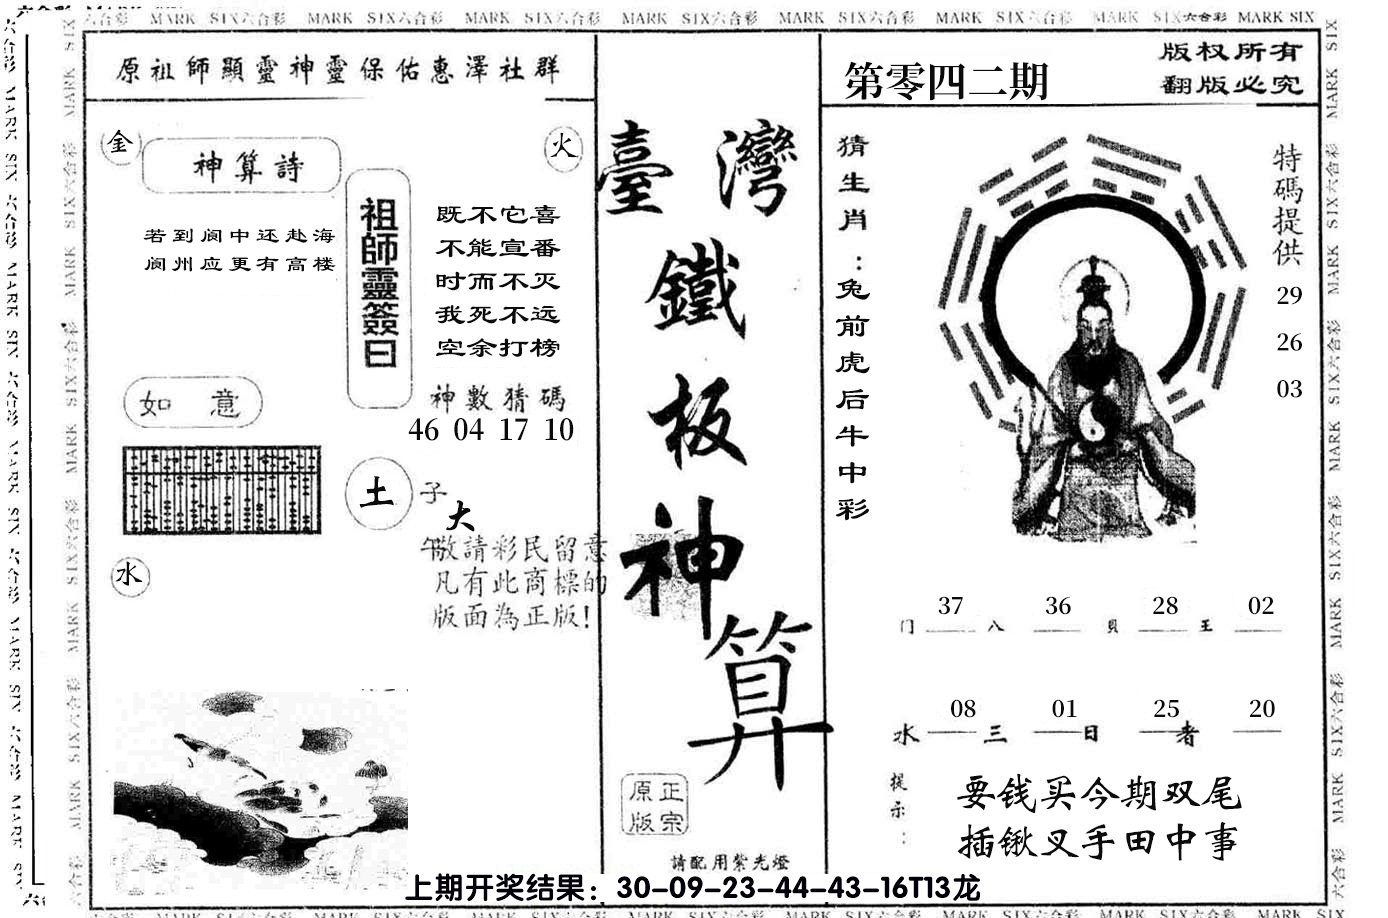 六合彩 MARK SIX六合彩 MARK SIX六合彩 MARK SIX六合彩 MARK SIX六合彩 MARK SIX六合彩 MARK SIX六合彩 MARK SIX六合彩 MARK SIX
原祖師顯靈神靈保佑惠澤社群
金
神算詩
火
若到阆中还赴海
阆州应更有高楼
祖師靈簽曰
既不它喜
不能宣番
时而不灭
我死不远
空余打榜
如 意
神數猜碼
46 04 17 10
土
子
大
午
敬請彩民留意
凡有此商標的
版面為正版!
水
臺灣
鐵
板
神
算
正宗
原版
請配用紫光燈
第零四二期
版权所有
翻版必究
猜生肖:兔前虎后牛中彩
特碼提供
29
26
03
37 36 28 02
门 八 貝 王
08 01 25 20
水 三 日 者
提示:
要钱买今期双尾
插锹叉手田中事
上期开奖结果：30-09-23-44-43-16T13龙